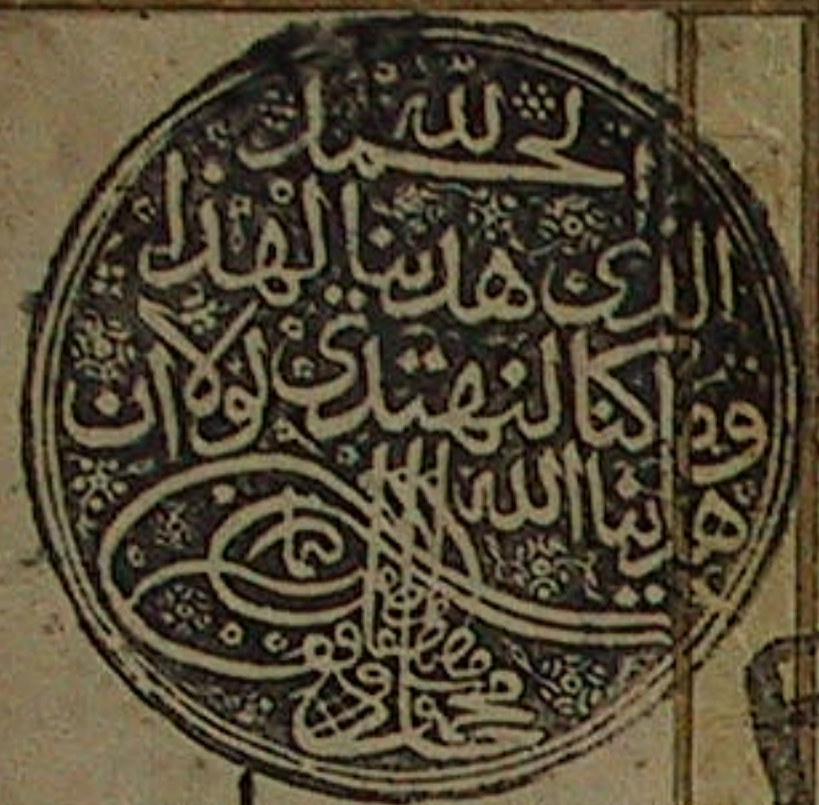 الحمد لله
الذى هدينا لهذا
وما كنا لنهتدى لولا ان
هدينا الله
محمود
مصطفى